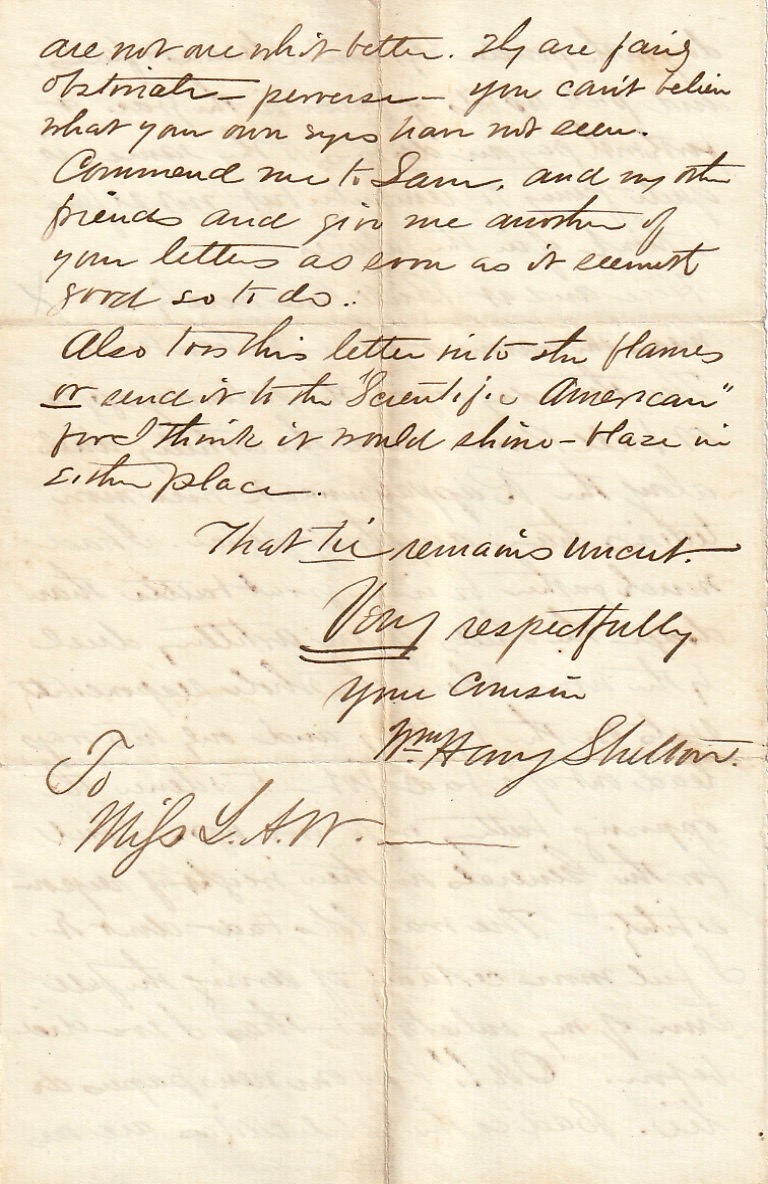 are not one whit better. They are fairly
obstinate – perverse – you can't believe
what your own eyes have not seen.
Commend me to Sam, and my other
friends and give me another of
your letters as soon as it seemest
good so to do.
Also toss this letter into the flames
or send it to the "Scientific American"
for I think it would shine – blaze in
either place.
That tie remains uncut.
Very respectfully
your Cousin
Wm Henry Shelton.
To
Miss L. A. W.